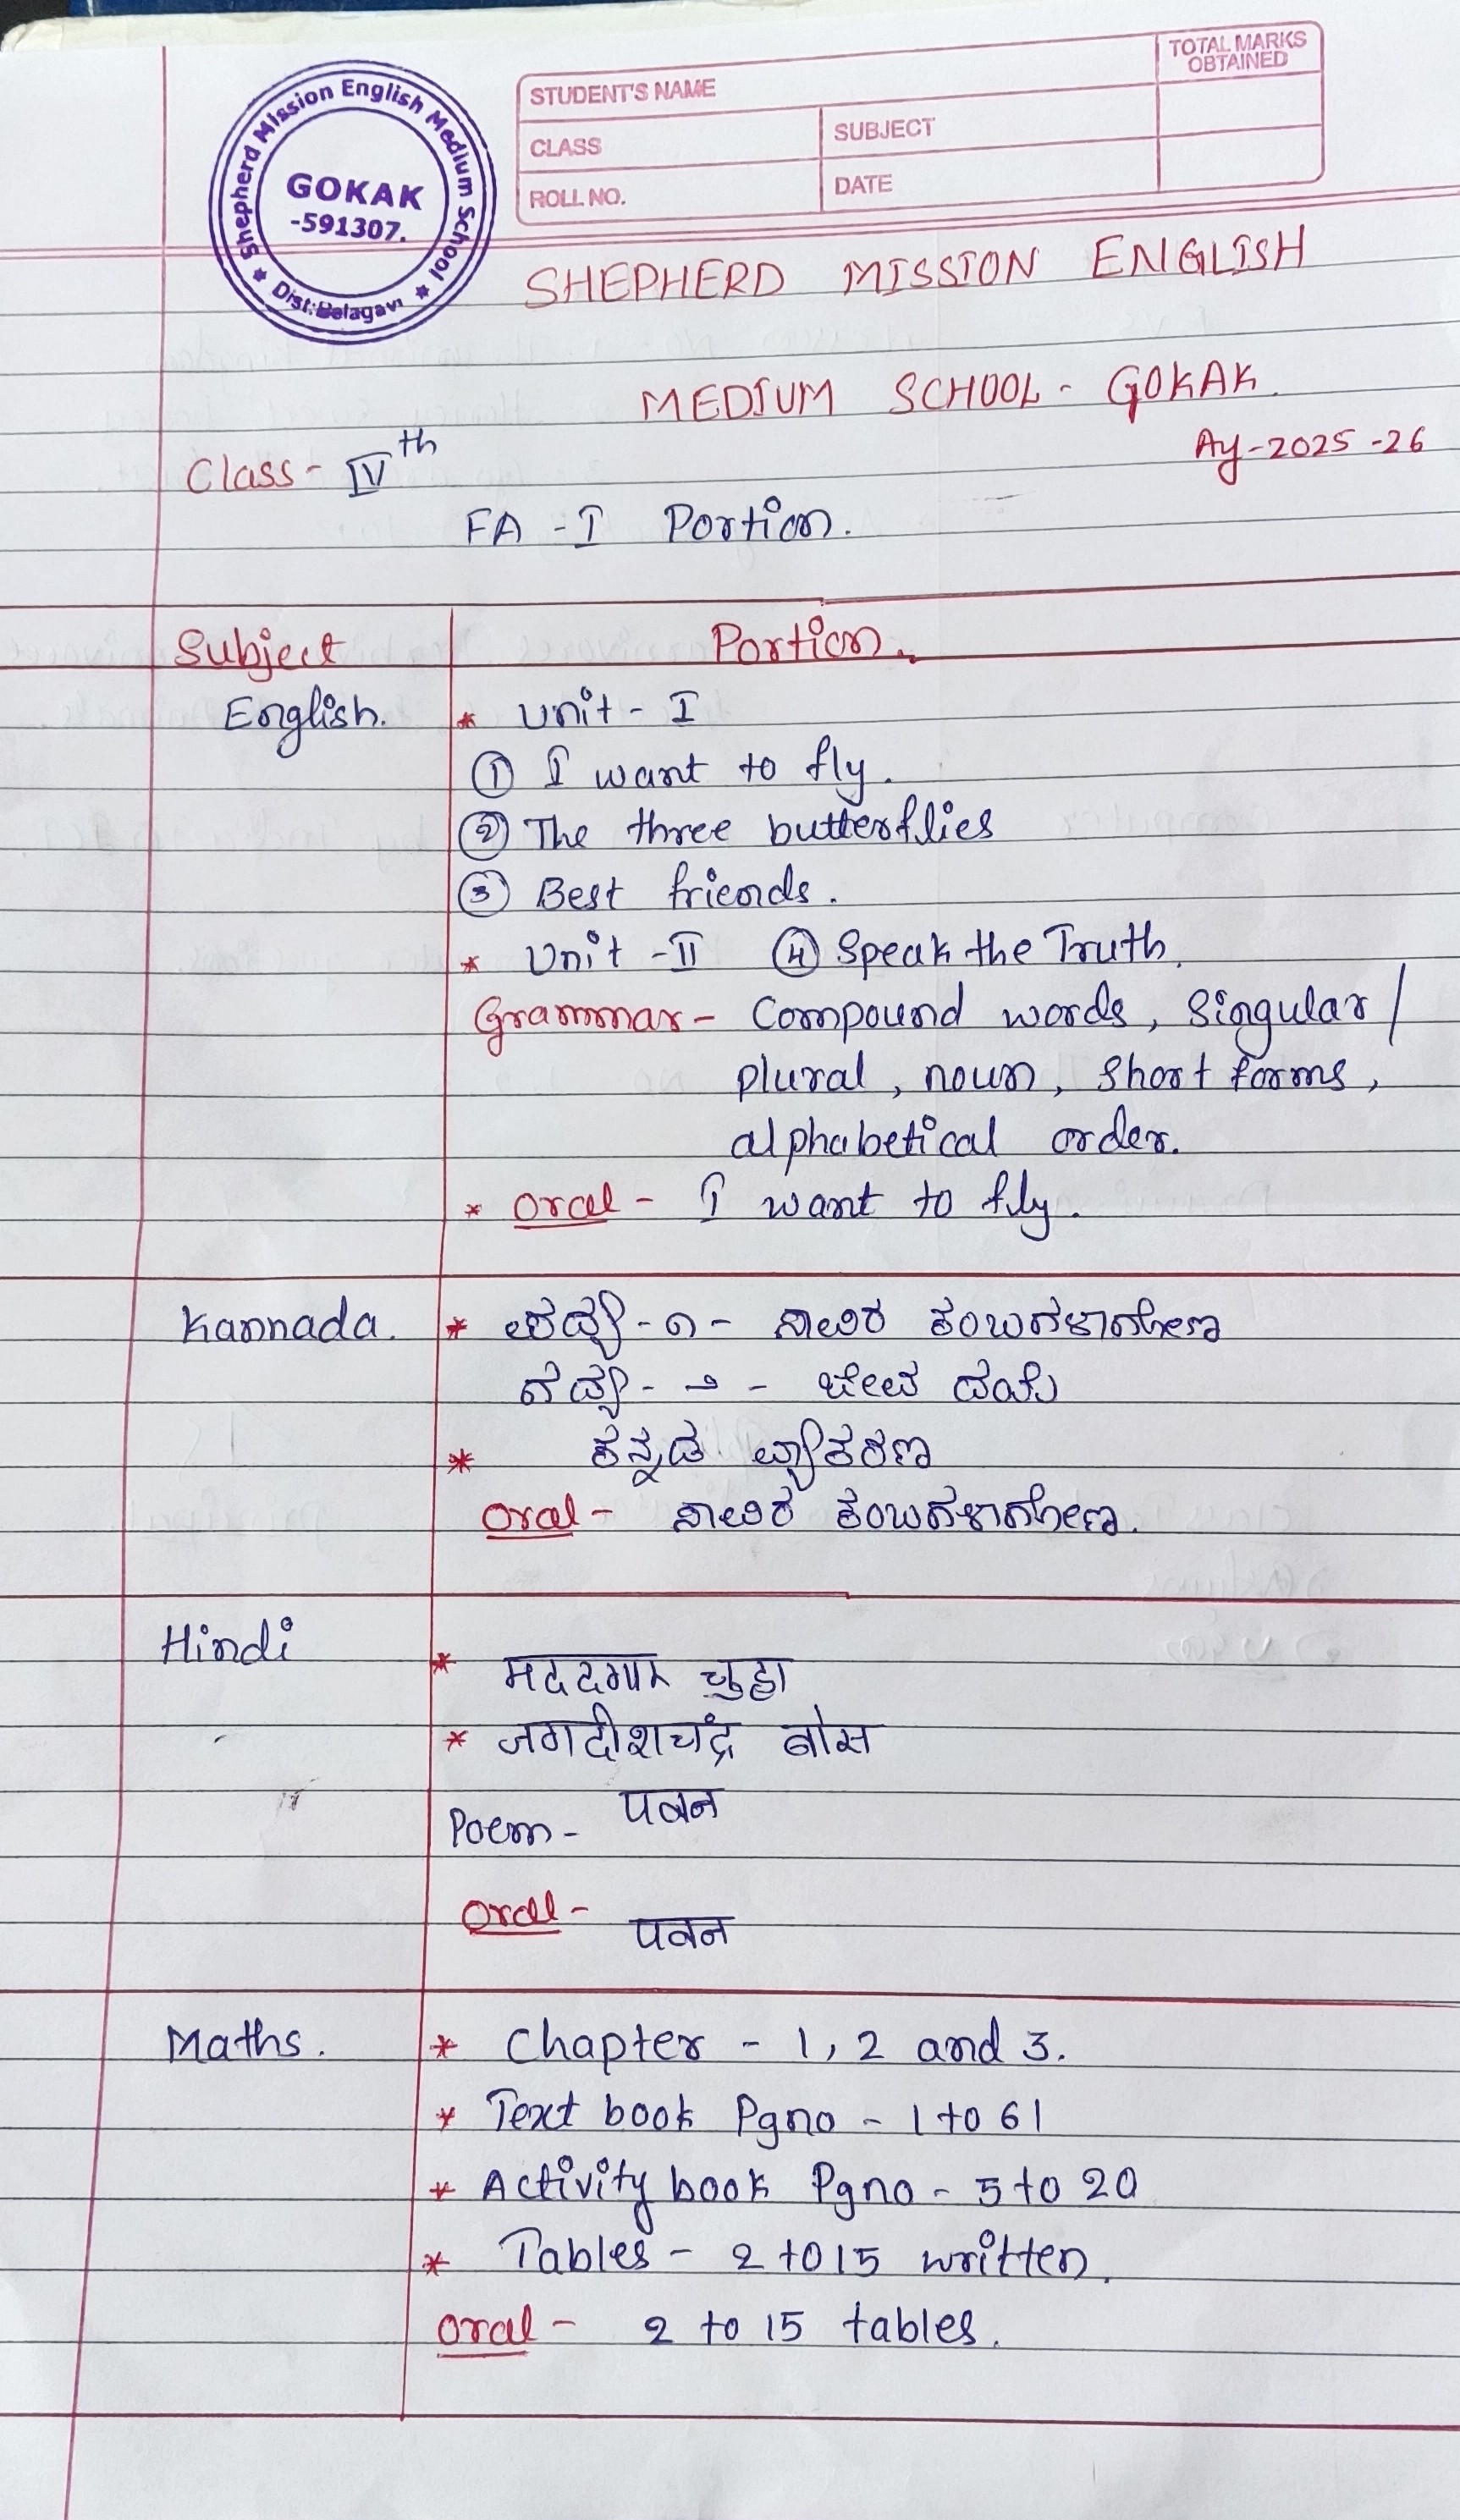 Shepherd Mission English Medium School
GOKAK
-591307.
Dist: Belagavi
STUDENT'S NAME
TOTAL MARKS
OBTAINED
CLASS
SUBJECT
ROLL NO.
DATE
SHEPHERD MISSION ENGLISH
MEDIUM SCHOOL - GOKAK.
Ay-2025-26
Class - IVth
FA - I Portion.
Subject Portion.
English. * Unit - I
① I want to fly.
② The three butterflies
③ Best friends.
* Unit - II ④ Speak the Truth.
Grammar - Compound words, Singular/
plural, noun, short forms,
alphabetical order.
* Oral - I want to fly.
Kannada. * ಪದ್ಯ - ೧ - ಸಾವಿರ ಕಂಬಗಳಾಗೋಣ
ಗದ್ಯ - ೨ - ಜೀವ ದಯೆ
* ಕನ್ನಡ ವ್ಯಾಕರಣ
Oral - ಸಾವಿರ ಕಂಬಗಳಾಗೋಣ.
Hindi * मददगार चुहा
* जगदीशचंद्र बोस
Poem - पवन
Oral - पवन
Maths. * Chapter - 1, 2 and 3.
* Text book Pgno - 1 to 61
* Activity book Pgno - 5 to 20
* Tables - 2 to 15 written.
Oral - 2 to 15 tables.